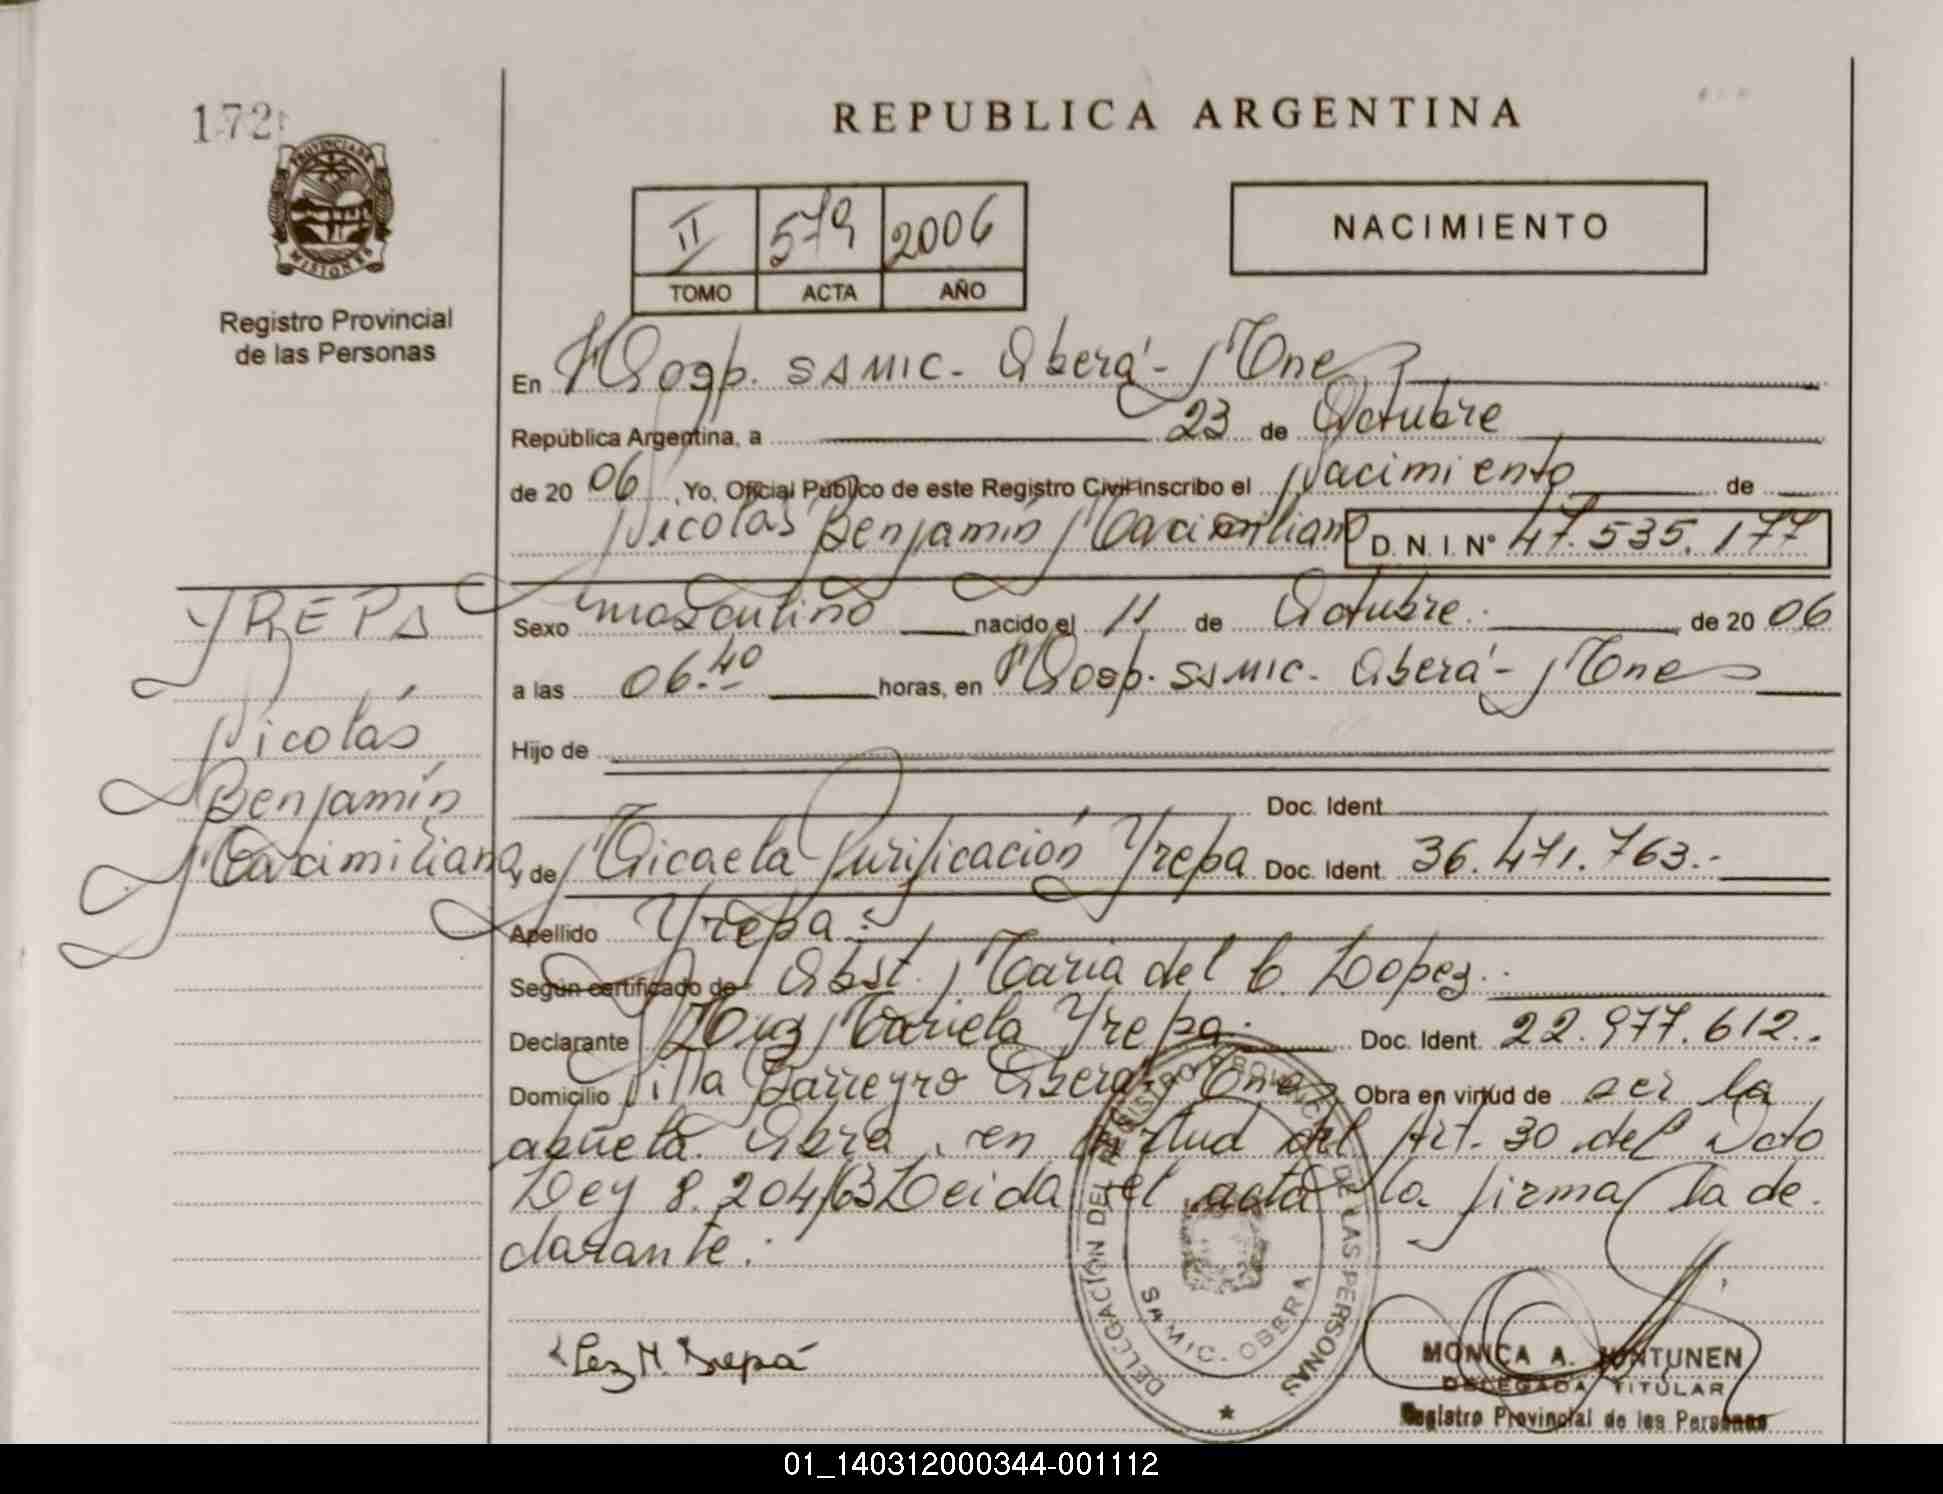 172
PROVINCIA DE
MISIONES
Registro Provincial
de las Personas
REPUBLICA ARGENTINA
II 579 2006
TOMO ACTA AÑO
NACIMIENTO
En Hosp. SAMIC. Oberá - Mnes
República Argentina, a 23 de Octubre
de 20 06, Yo, Oficial Público de este Registro Civil inscribo el Nacimiento de
Nicolás Benjamín Maximiliano D. N. I. N° 47.535.177
Sexo masculino nacido el 11 de Octubre. de 20 06
a las 06.40 horas, en Hosp. SAMIC. Oberá - Mnes
Hijo de
Doc. Ident.
y de Micaela Purificación Yrepa Doc. Ident. 36.471.763.-
Apellido Yrepa.
Según certificado de Obst. Maria del C. Lopez.
Declarante Luz Mariela Yrepa. Doc. Ident. 22.977.612.
Domicilio Villa Barreyro Oberá Mnes Obra en virtud de ser la
abuela. Obra en virtud del Art. 30 del Dcto
Ley 8.204/63 Leida el acta la firma la de
clarante.
YREPA
Nicolás
Benjamín
Maximiliano
Luz M. Yrepá
DELEGACIÓN DEL REGISTRO PROVINCIAL DE LAS PERSONAS
SAMIC. OBERA
MONICA A. JUNTUNEN
DELEGADA TITULAR
Registro Provincial de las Personas
01_140312000344-001112